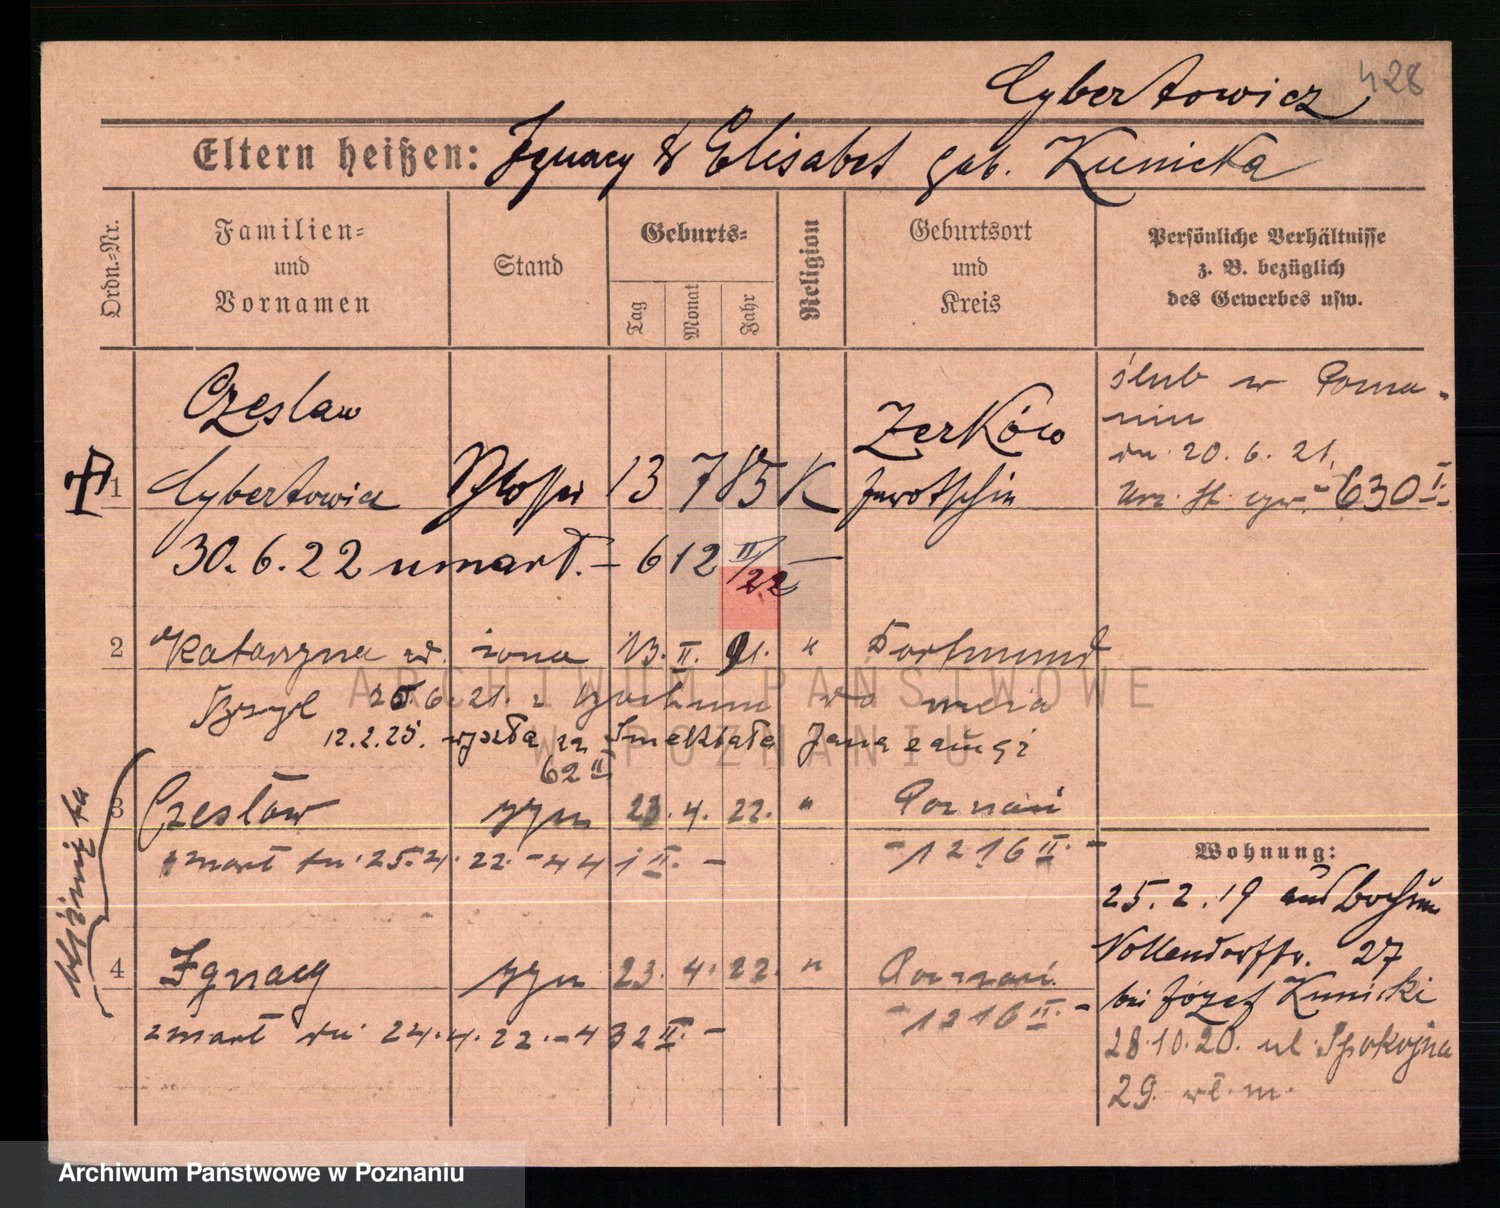 428
Cybertowicz
Eltern heißen: Ignacy & Elisabet geb. Kunicka
Ordn.-Nr.
Familien- und Vornamen
Stand
Geburts-
Tag
Monat
Jahr
Religion
Geburtsort und Kreis
Persönliche Verhältnisse z. B. bezüglich des Gewerbes usw.
Czeslaw
Zerków
ślub w Pozna-
niu
dn. 20. 6. 21.
1 Cybertowicz Schlosser 13 7 85 K Jarotschin
630 I.
30. 6. 22 umarł. – 612 II/22 –
2 Katarzyna żona 13. II. 91. " Dortmund
6. 21. z Bochum do męża
12.2.25. wyszła za Smektała Jana zamąż
62 II
3 Czesław syn 23. 4. 22. " Poznań
zmarł dn. 25. 4. 22. – 441 II. –
– 1216 II. –
bliźnięta
4 Ignacy syn 23. 4. 22. " Poznań
zmarł dn. 24. 4. 22. – 432 II. –
– 1216 II. –
Wohnung:
25. 2. 19 aus Bochum
Nollendorfstr. 27
bei Józef Kunicki
28.10.20. ul. Spokojna
29. wł. m.
ARCHIWUM PAŃSTWOWE
W POZNANIU
Archiwum Państwowe w Poznaniu